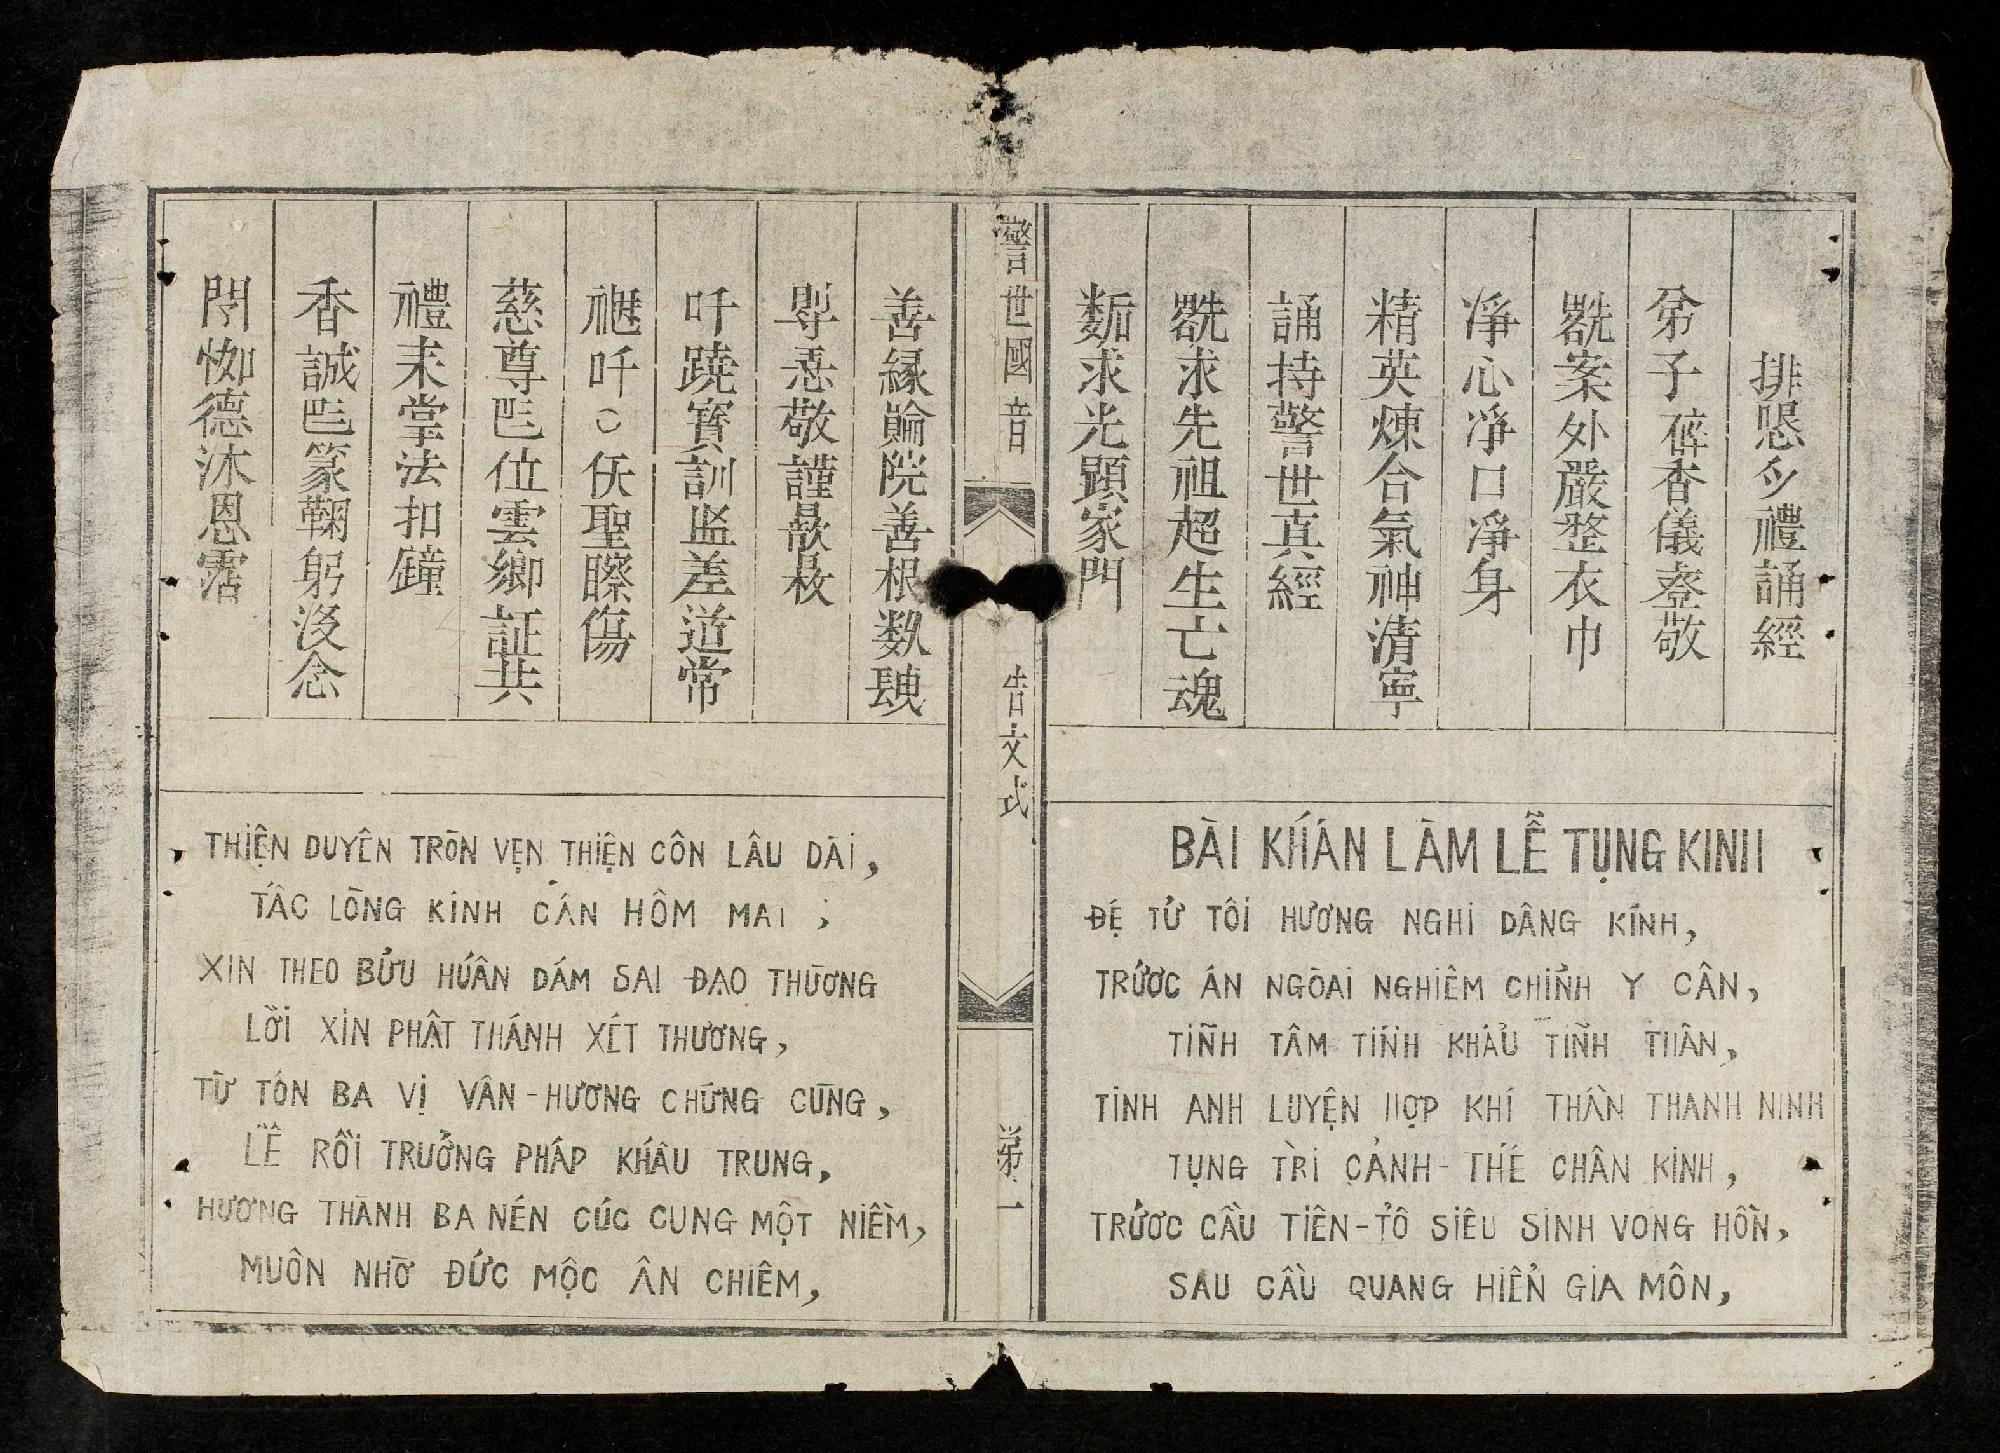 排懇𫜵禮誦經
弟子碎香儀䔲敬
案外嚴整衣巾
淨心淨口淨身
精英煉合氣神清寧
誦持警世真經
求先祖超生亡魂
求光顕家門
BÀI KHẤN LÀM LỄ TỤNG KINH
ĐỆ TỬ TÔI HƯƠNG NGHI DÂNG KÍNH,
TRƯỚC ÁN NGOÀI NGHIÊM CHỈNH Y CÂN,
TĨNH TÂM TĨNH KHẨU TĨNH THÂN,
TINH ANH LUYỆN HỢP KHÍ THẦN THANH NINH
TỤNG TRÌ CẢNH-THẾ CHÂN KINH,
TRƯỚC CẦU TIÊN-TỔ SIÊU SINH VONG HỒN,
SAU CẦU QUANG HIỂN GIA MÔN,
警世國音
告文式
第一
善縁院善根数
敬謹
吀蹺寳訓監差道常
吀聖傷
慈尊𠀧位雲鄉証共
禮耒掌法扣鐘
香誠𠀧篆鞠躬没念
德沐恩霑
THIỆN DUYÊN TRÒN VẸN THIỆN CÔN LÂU DÀI,
TẤC LÒNG KÍNH CẨN HÔM MAI,
XIN THEO BỬU HUẤN DÁM SAI ĐẠO THƯỜNG
LỜI XIN PHẬT THÁNH XÉT THƯƠNG,
TỪ TÔN BA VỊ VÂN-HƯƠNG CHỨNG CÙNG,
LỄ RỒI TRƯỞNG PHÁP KHẤU TRUNG,
HƯƠNG THÀNH BA NÉN CÚC CUNG MỘT NIỀM,
MUÔN NHỜ ĐỨC MỘC ÂN CHIÊM,